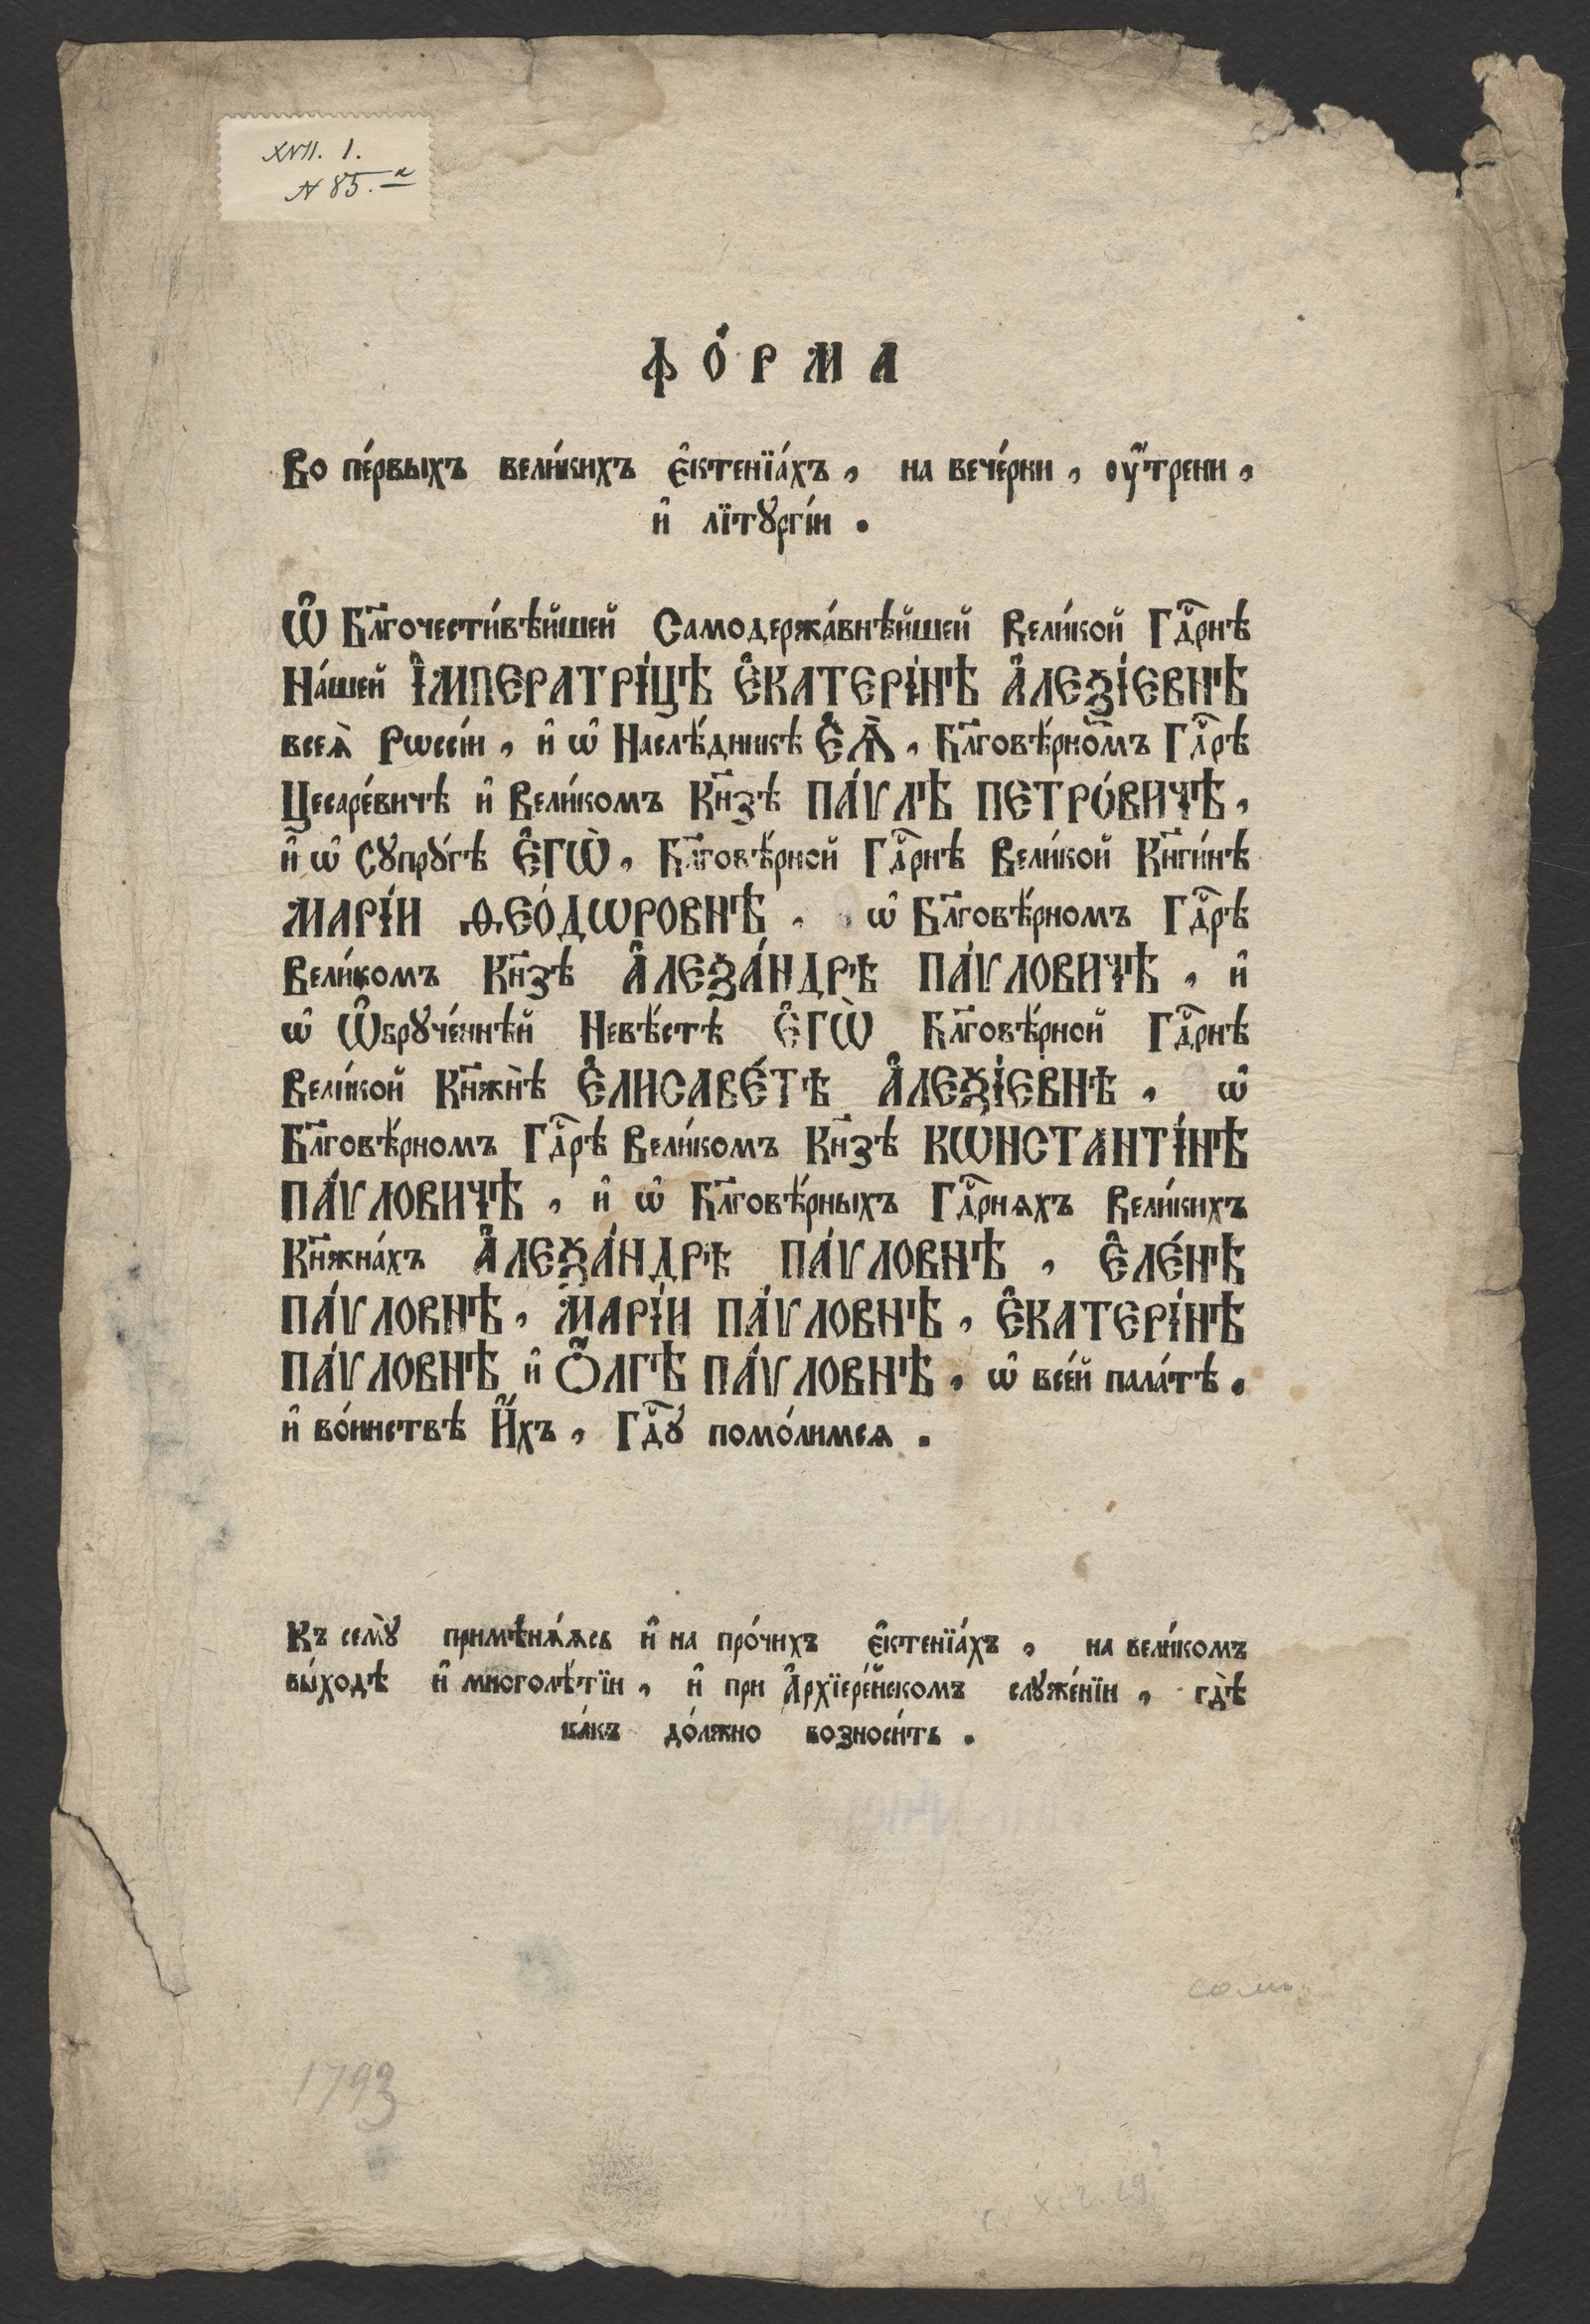 XVII. 1.
N 85. a
ФО́РМА
Во пе́рвыхъ вели́кихъ є҆ктенїа́хъ, на вече́рни, ᲂу҆́трени,
и҆ лїтꙋргі́и.
Ѡ҆ Бл҃гочести́вѣйшей Самодержа́внѣйшей Вели́кой Гдⷭ҇рнѣ
На́шей І҆МПЕРАТРІ́ЦѢ Є҆КАТЕРІ́НѢ А҆ЛЕѮІ́ЕВНѢ
всеѧ̀ Рѡссі́и, и҆ ѡ҆ Наслѣ́дникѣ Є҆Ѧ̀, Бл҃говѣ́рномъ Гдⷭ҇рѣ
Цесаре́вичѣ и҆ Вели́комъ Кн҃зѣ ПА́ѴЛѢ ПЕТРО́ВИЧѢ,
и҆ ѡ҆ Сꙋпрꙋ́гѣ Є҆ГѠ̀, Бл҃говѣ́рной Гдⷭ҇рнѣ Вели́кой Кн҃ги́нѣ
МАРІ́И ѲЕО́ДѠРОВНѢ, ѡ҆ Бл҃говѣ́рномъ Гдⷭ҇рѣ
Вели́комъ Кн҃зѣ А҆ЛЕѮА́НДРѢ ПА́ѴЛОВИЧѢ, и҆
ѡ҆ Ѡ҆брꙋче́ннѣй Невѣ́стѣ Є҆ГѠ̀ Бл҃говѣ́рной Гдⷭ҇рнѣ
Вели́кой Кн҃жнѣ̀ Є҆ЛИСАВЕ́ТѢ А҆ЛЕѮІ́ЕВНѢ, ѡ҆
Бл҃говѣ́рномъ Гдⷭ҇рѣ Вели́комъ Кн҃зѣ КѠНСТАНТІ́НѢ
ПА́ѴЛОВИЧѢ, и҆ ѡ҆ Бл҃говѣ́рныхъ Гдⷭ҇рнѧхъ Вели́кихъ
Кн҃жна́хъ А҆ЛЕѮА́НДРѢ ПА́ѴЛОВНѢ, Є҆ЛЕ́НѢ
ПА́ѴЛОВНѢ, МАРІ́И ПА́ѴЛОВНѢ, Є҆КАТЕРІ́НѢ
ПА́ѴЛОВНѢ и҆ Ѻ҆́ЛГѢ ПА́ѴЛОВНѢ, ѡ҆ все́й пала́тѣ,
и҆ во́инствѣ И҆́хъ, Гдⷭ҇ꙋ помо́лимсѧ.
Къ семꙋ̀ примѣнѧ́ѧсь и҆ на про́чихъ є҆ктенїа́хъ, на вели́комъ
вы́ходѣ и҆ многолѣ́тїи, и҆ при А҆рхїере́йскомъ слꙋже́нїи, гдѣ̀
ка́къ до́лжно возноси́ть.
1793